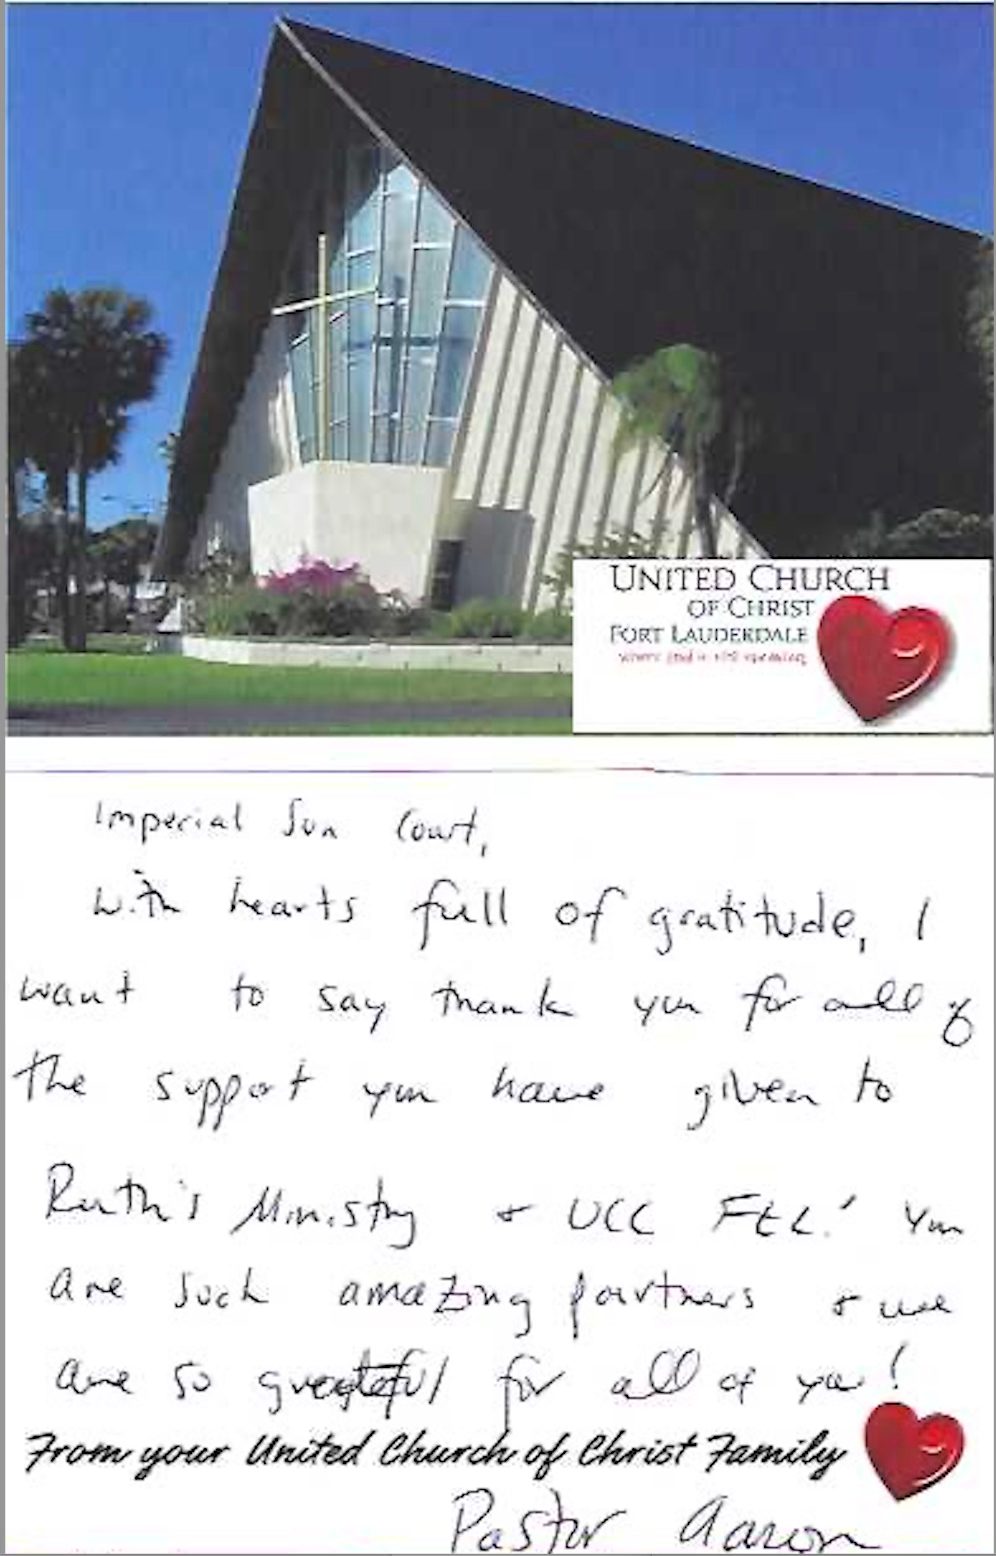 UNITED CHURCH
OF CHRIST
FORT LAUDERDALE
where God is still speaking
Imperial Sun Court,
With hearts full of gratitude, I
want to say thank you for all of
the support you have given to
Ruth's Ministry & UCC FtL! You
are such amazing partners & we
are so grateful for all of you!
From your United Church of Christ Family
Pastor Aaron